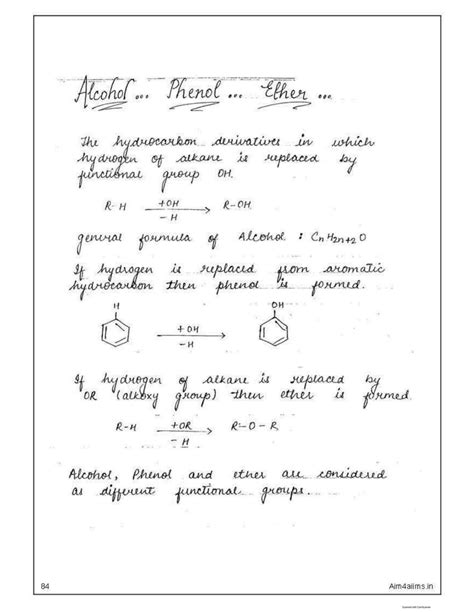 Alcohol... Phenol... Ether...
The hydrocarbon derivatives in which
hydrogen of alkane is replaced by
functional group OH.
R-H +OH -H → R-OH
general formula of Alcohol : CnH2n+2O
If hydrogen is replaced from aromatic
hydrocarbon then phenol is formed.
H +OH -H → OH
If hydrogen of alkane is replaced by
OR (alkoxy group) then ether is formed.
R-H +OR -H → R-O-R
Alcohol, Phenol and ether are considered
as different functional groups...
84 Aim4aiims.in